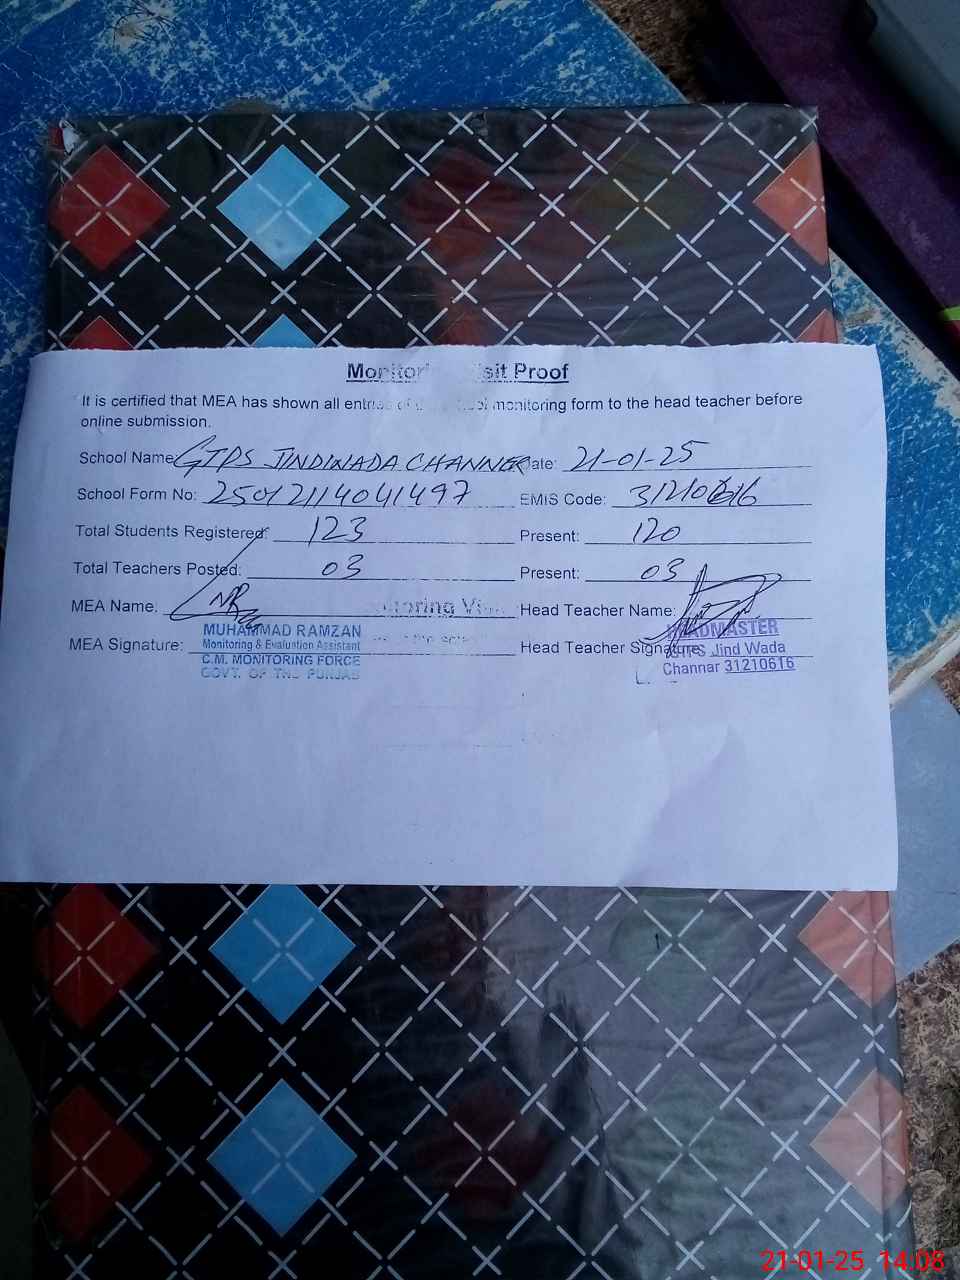 Monitori sit Proof
It is certified that MEA has shown all entries of monitoring form to the head teacher before
online submission.
School Name GTPS JINDWADA CHANNER Date: 21-01-25
School Form No: 25012114041497 EMIS Code: 31210616
Total Students Registered: 123 Present: 120
Total Teachers Posted: 03 Present: 03
MEA Name: MR toring Vi Head Teacher Name:
MEA Signature: Head Teacher Signature
MUHAMMAD RAMZAN
Monitoring & Evaluation Assistant
C.M. MONITORING FORCE
GOVT. OF THE PUNJAB
HEADMASTER
GTPS Jind Wada
Channar 31210616
21-01-25 14:08